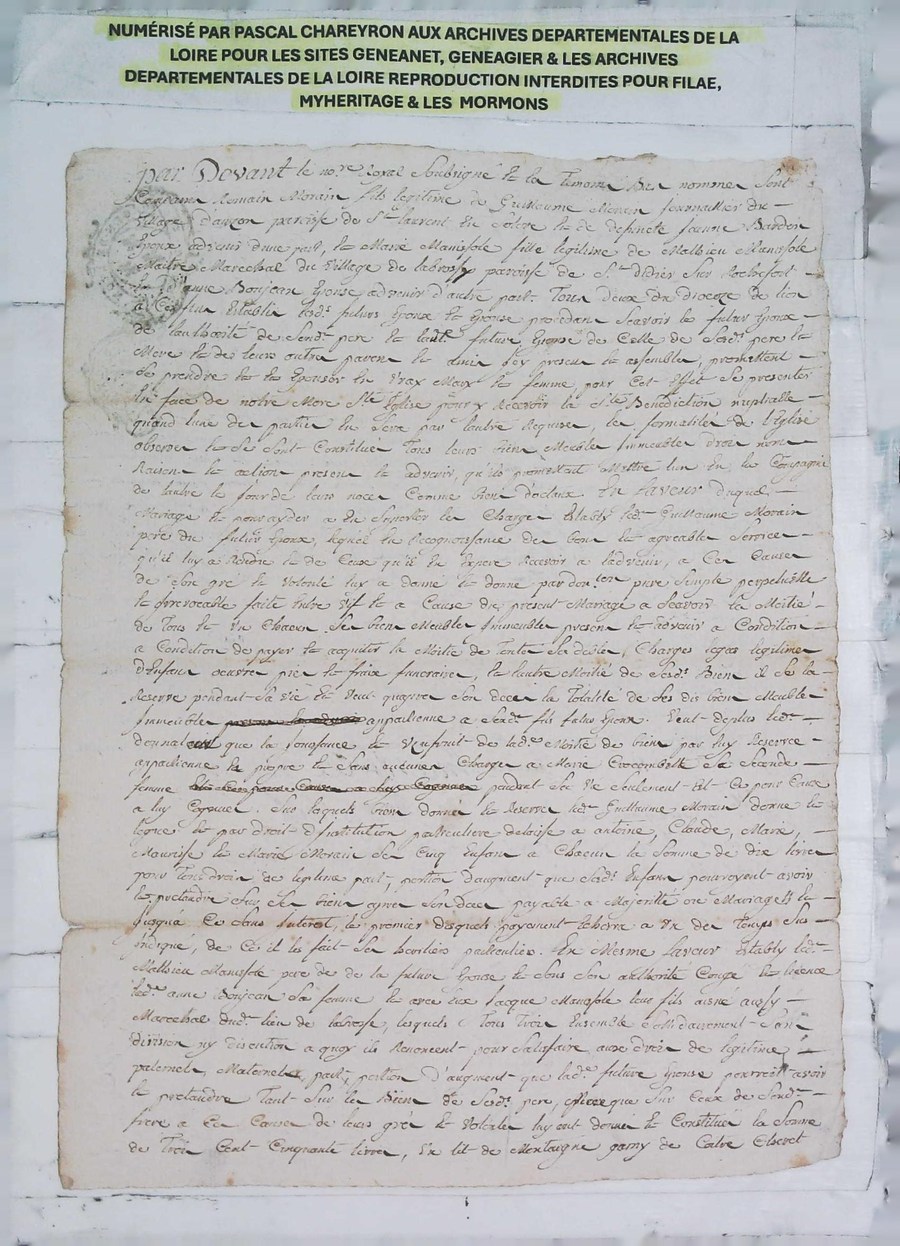 NUMÉRISÉ PAR PASCAL CHAREYRON AUX ARCHIVES DEPARTEMENTALES DE LA
LOIRE POUR LES SITES GENEANET, GENEAGIER & LES ARCHIVES
DEPARTEMENTALES DE LA LOIRE REPRODUCTION INTERDITES POUR FILAE,
MYHERITAGE & LES MORMONS
par Devant le no.re Royal Soubsigné et la Temoins Bas nommer sont
Romain Morain fils legitime de Guillaume Morain du
village d'ancon paroisse de St. laurent En Solore et de defuncte jeanne
Epoux advenir d'une part, et Marie Manissole fille legitime de Mathieu Manissole
Maitre Marechal du Village de labrosse paroisse de St. didier sur Rochefort
et d'anne Bonjean Epouse advenir d'autre part. Tous deux du diocese de lion
Establis lesd. futurs Epoux et Epouse procedan Scavoir le futur Epoux
de laulhorité de Sond. pere et lad.te future Epouse de Celle de Sesd. pere et
Mere et de leurs autre paren et amis Icy presen et assembler, promettant
de prendre et Epouser En Vray Mary et femme, pour Cet Effet Se presenter
En face de notre Mere Ste Eglise pour y Recevoir la Ste Benediction nuptialle
quand lune des parties En Sera par lautre Requise, les formalités de l'Eglise
observer et se sont Constitué Tous leurs bien Meuble Immeuble droix noms
Raison et action present et advenir, qu'ils promettent Mettre lun En la Compagnie
de lautre le jour de leurs noces Comme bien dotaux. En faveur duquel
Mariage et pour ayder a En Suporter les Charges Establÿ led. Guillaume Morain
pere du futur Epoux, lequel En Recognoissance des bons et agreable Services
qu'il luy a Rendu et de Ceux qu'il En Espere Recevoir a ladvenir, a Ces Causes
de Son gré et Volonté luy a donné et donne par don.on pure Simple perpetuelle
et Irrevocable faite Entre Vif et a Cause du present Mariage a Scavoir la Moitié
de Tous et Un Chacun Ses bien Meuble Immeuble present et advenir a Condition
a Condition de payer et acquiter la Moitié de Toute Sa dettes, Charges legas legitime
d'Enfans oeuvre pie et fraix funeraires, et lautre Moitié de Sesd. Bien il Se la
Reserve pendant Sa Vie et Veut quapres Son deces la Totalité de Ses dis bien Meuble
Immeuble appartienne a Sond. fils futur Epoux. Veut de plus led.
donnateur que la jouissance et Usufruit de lad.e Moitié de bien par luy Reserve
appartienne et Sans aucune Charge a Marie Sa Seconde
femme pendant Sa Vie Seulement Et Ce pour Cause
a luy Cognue. Sur lesquels biens donner et Reserve led. Guillaume Morain donne et
legue et par droit d'Institution particuliere delaisse a antoine, Claude, Marie,
et Marie Morain Ses Cinq Enfans a Chacun la Somme de dix livres
pour Tous droix de legitime part, portion d'augment que Sesd. Enfans pourroyent avoir
et pretandre Sur Ses bien apres Son deces payable a Majorité ou Mariage et
jusqua Ce Sans Interet, le premier desquels payement Echerra a Un des Temps Sus
indiqué, de Ce il les fait Ses heritiers particulier. En Mesme faveur Establÿ led.
Mathieu Manissole pere de de la future Epouse et Sous Son authorité Congé et licence
lad. anne Bonjean Sa femme et avec Eux Jacque Manissole leur fils aisné aussy
Marechal dud. lieu de labrosse, lesquels Tous Trois Ensemble Solidairement Sans
division ny discution a quoy ils Renoncent pour Satisfaire aux droix de legitime
paternel, Maternel, part, portion d'augment que lad. future Epouse pourroit avoir
et pretandre Tant Sur les Bien de Sesd. pere, que Sur Ceux de Sond.
frere a Ces Causes de leurs gré et Volonté luy ont donné et Constitué la Somme
de Trois Cent Cinquante livres, Un lit de Montaigne garny de